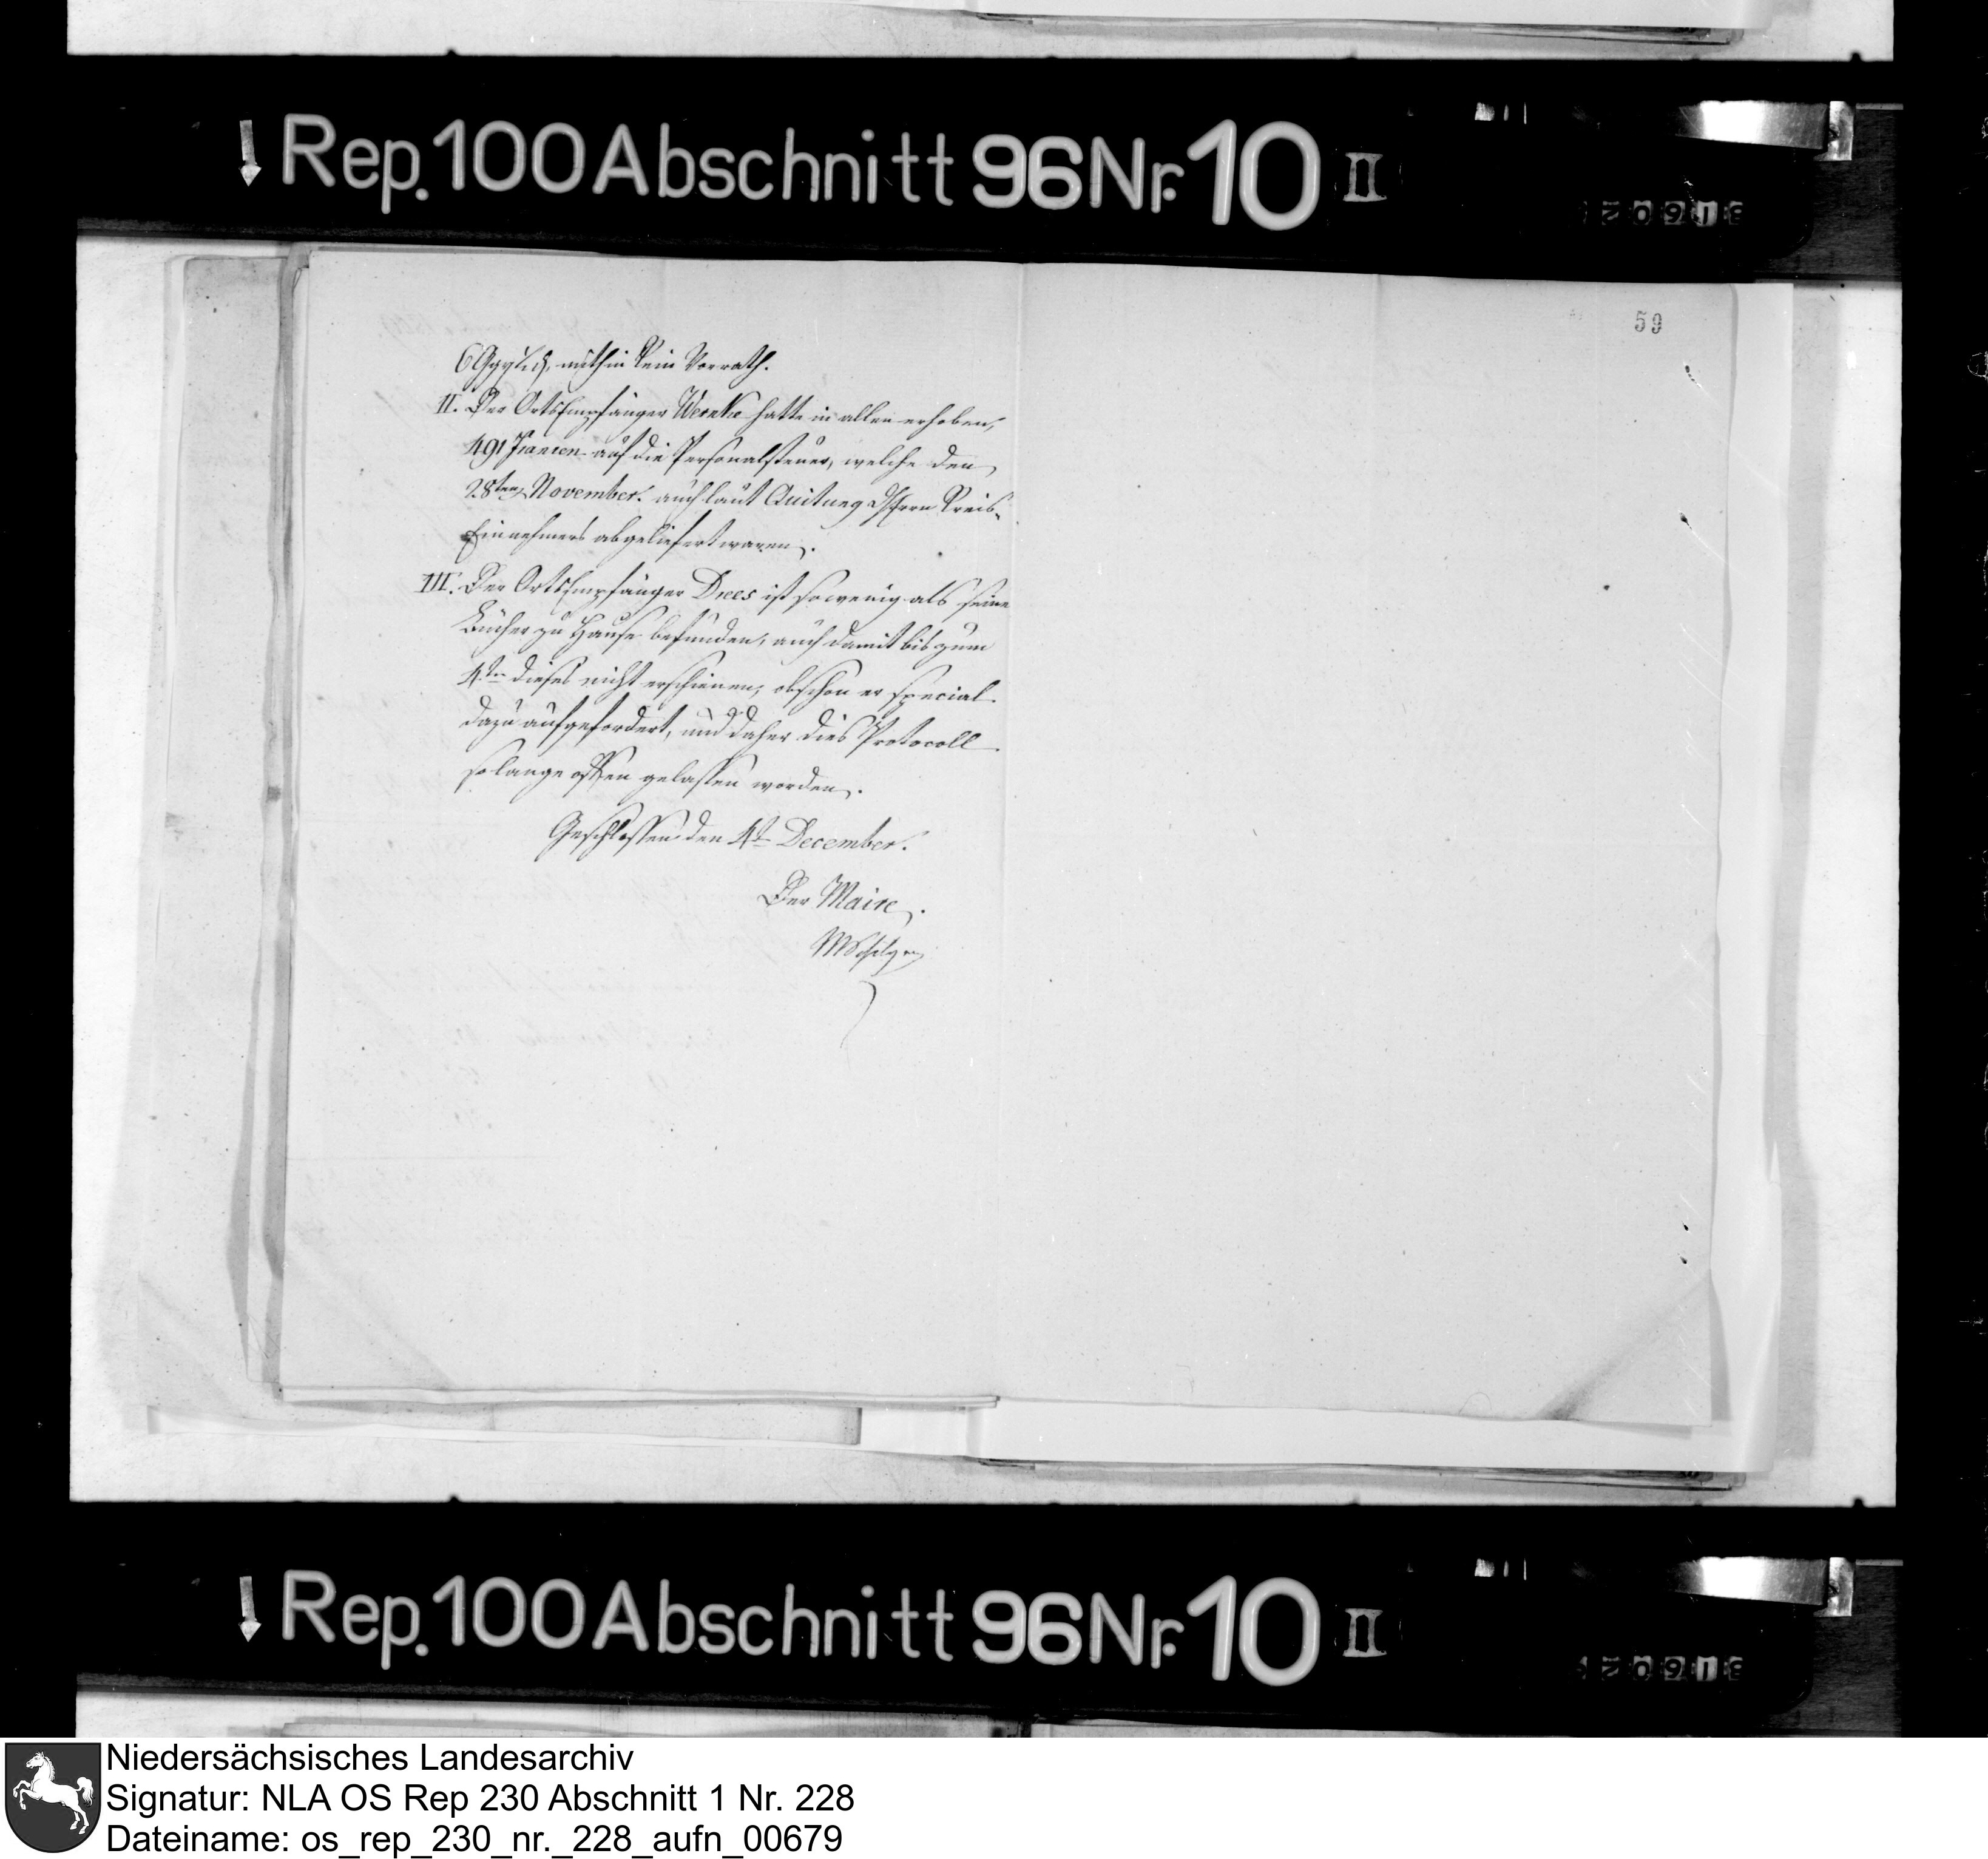 Rep. 100 Abschnitt 96 Nr. 10 II
59
mithin kein Vorrath.
II. Der OrtsEmpfänger Wernke hatte in allen erhoben,
491 Francen auf die Personalsteuer, welche den
28ten November. auch laut Quitung Herrn Kreis-
Einnehmers abgeliefert waren.
III. Der OrtsEmpfänger Drees ist sowenig als seine
Bücher zu Hause befunden, auch damit bis zum
4ten dieses nicht erschienen, obschon er special.
dazu aufgefordert, und daher dies Protocoll
solange offen gelassen worden.
Geschlossen den 4t December.
Der Maire.
Rep. 100 Abschnitt 96 Nr. 10 II
Niedersächsisches Landesarchiv
Signatur: NLA OS Rep 230 Abschnitt 1 Nr. 228
Dateiname: os_rep_230_nr._228_aufn_00679